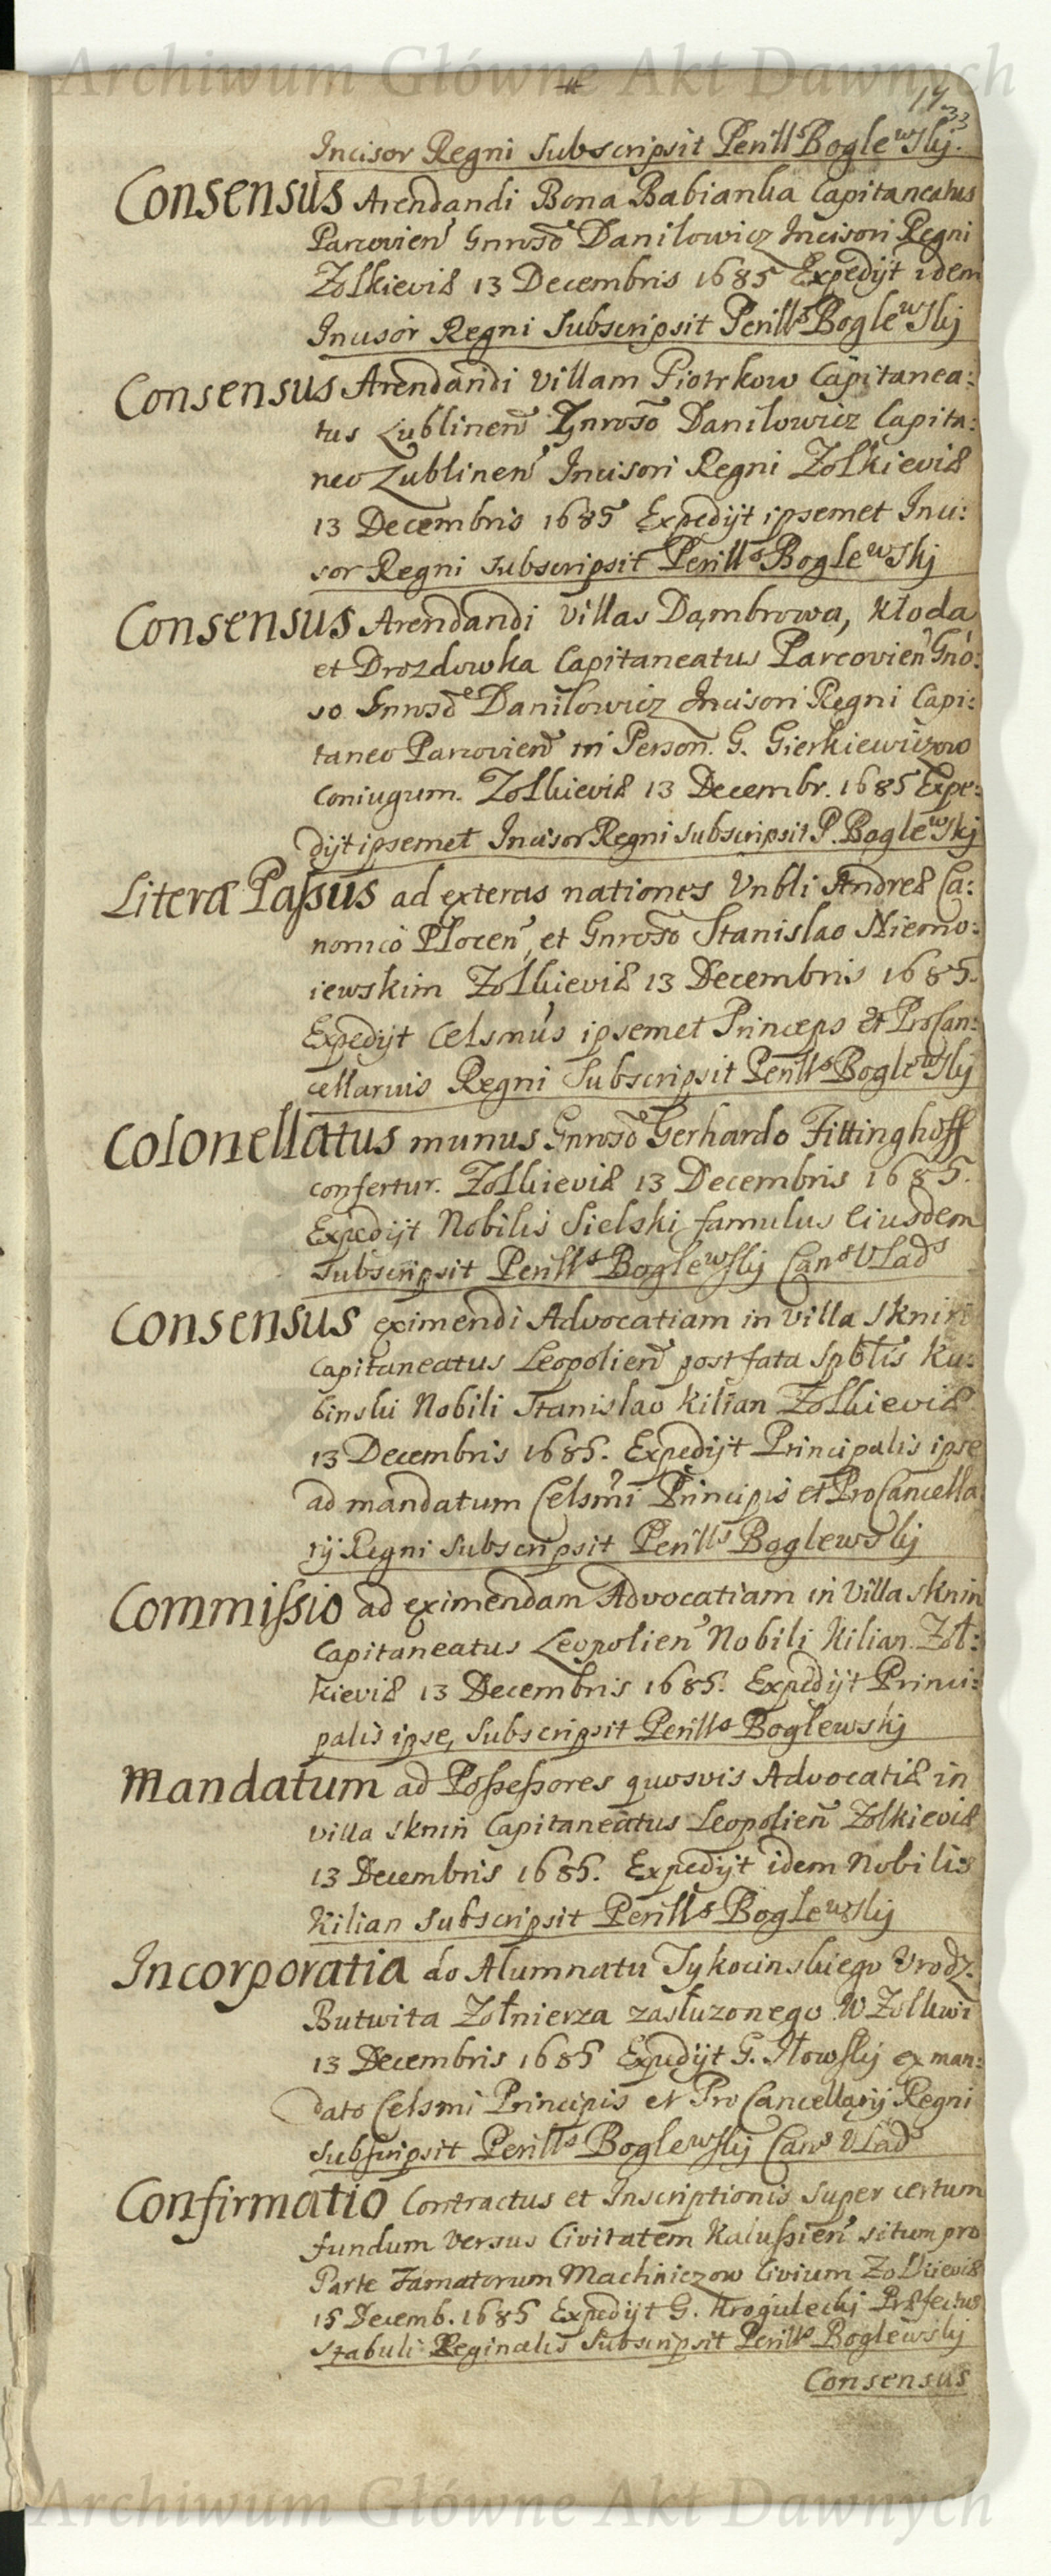 Archiwum Główne Akt Dawnych
Incisor Regni Subscripsit Perills Boglewskj.
Consensus Arendandi Bona Babianka Capitaneatus
Parcovien Gnroso Danilowicz Incisori Regni
Zolkieviæ 13 Decembris 1685 Expedijt idem
Incisor Regni Subscripsit Perills Boglewskj
Consensus Arendandi villam Piotrkow Capitanea:
tus Lublinen Gnroso Danilowicz Capita:
neo Lublinen Incisori Regni Zolkieviæ
13 Decembris 1685 Expedijt ipsemet Inci:
sor Regni subscripsit Perills Boglewskj
Consensus Arendandi villas Dąmbrowa, Kłoda
et Drozdowka Capitaneatus Parcovien Gnô:
so Gnroso Danilowicz Incisori Regni Capi:
taneo Parcovien in Person. G. Gierkiewiczow
Coniugum. Zolkieviæ 13 Decembr. 1685 Expe:
dijt ipsemet Incisor Regni subscripsit P. Boglewskj
Literæ Passus ad exteras nationes Vnbli Andreæ Ca:
nonico Plocen, et Gnroso Stanislao Niemo:
iewskim Zolkieviæ 13 Decembris 1685.
Expedijt Celsmus ipsemet Princeps et ProCan:
cellarius Regni Subscripsit Perills Boglewskj
Colonellatus munus Gnroso Gerhardo Fittinghoff
confertur. Zolkieviæ 13 Decembris 1685.
Expedijt Nobilis Sielski famulus Eiusdem
Subscripsit Perills Boglewskj Cans VLads
Consensus eximendi Advocatiam in villa Sknin
Capitaneatus Leopolien post fata Spbtis Ku:
binski Nobili Stanislao Kilian Zolkieviæ
13 Decembris 1685. Expedijt Principalis ipse
ad mandatum Celsmi Principis et ProCancella
rij Regni subscripsit Perills Boglewskj
Commissio ad eximendam Advocatiam in Villa Sknin
Capitaneatus Leopolien Nobili Kilian. Zol:
kieviæ 13 Decembris 1685. Expedijt Princi:
palis ipse, Subscripsit Perills Boglewskj
Mandatum ad Possessores quosvis Advocatiæ in
villa Sknin Capitaneatus Leopolien Zolkieviæ
13 Decembris 1685. Expedijt idem Nobilis
Kilian Subscripsit Perills Boglewskj
Incorporatia do Alumnatu Tykocinskiego Vrodz.
Butwita Zołnierza zasłuzonego. W Zolkwi
13 Decembris 1685 Expedijt G. Iłowskj ex man:
dato Celsmi Principis et ProCancellarij Regni
Subscripsit Perills Boglewskj Cans VLads
Confirmatio Contractus et Inscriptionis super certum
fundum versus Civitatem Kalussien situm pro
Parte Famatorum Machniczow Civium Zolkieviæ
15 Decemb. 1685 Expedijt G. Kroguleckj Præfectus
Stabuli Reginalis Subscripsit Perills Boglewskj
Consensus
Archiwum Główne Akt Dawnych